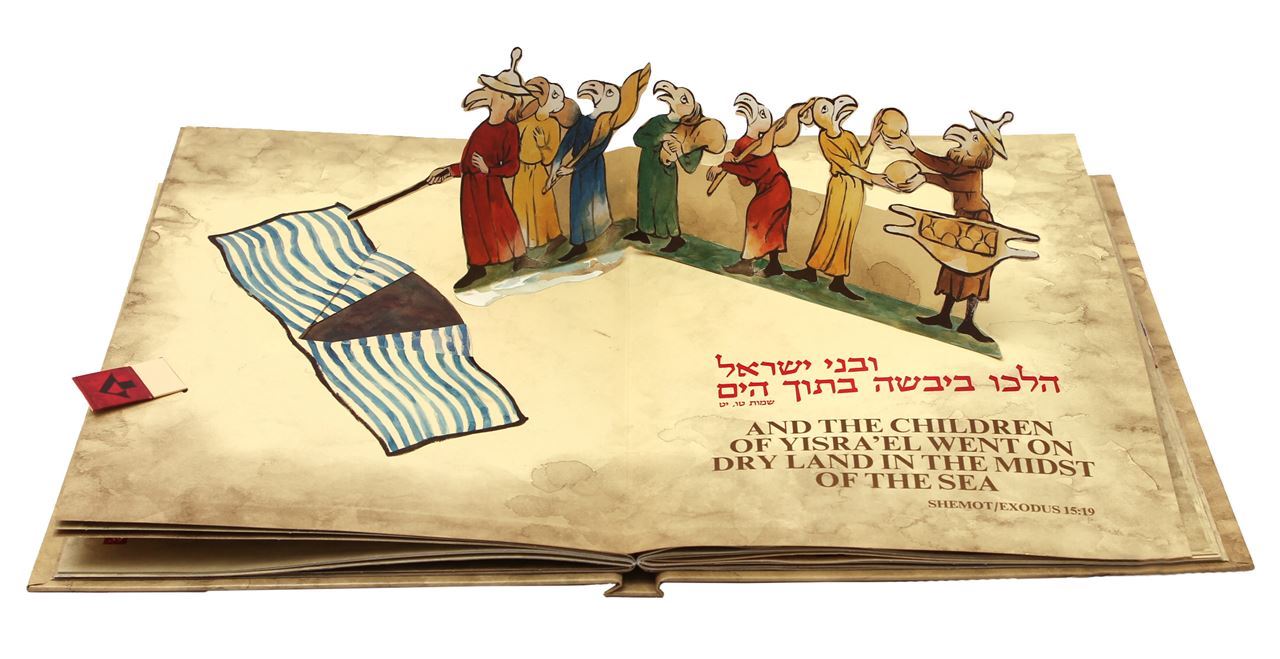 ובני ישראל
הלכו ביבשה בתוך הים
שמות טו, יט
AND THE CHILDREN
OF YISRA'EL WENT ON
DRY LAND IN THE MIDST
OF THE SEA
SHEMOT/EXODUS 15:19